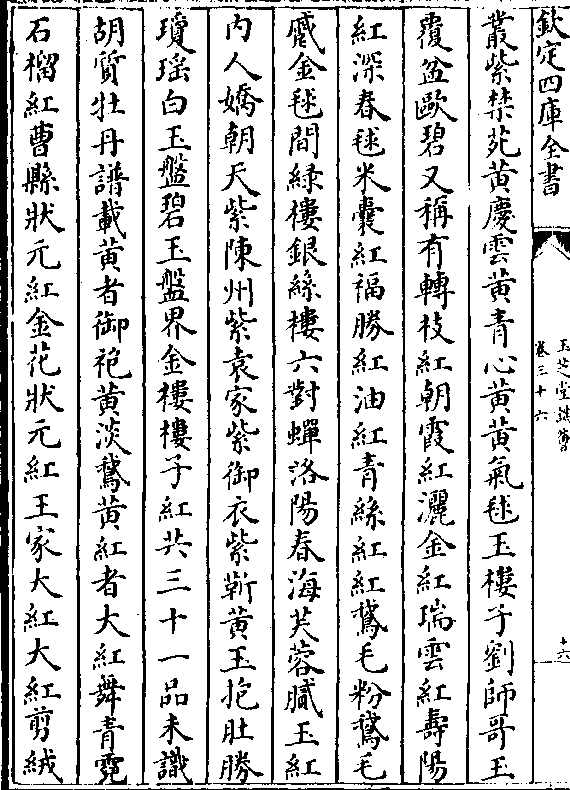 欽定四庫全書
玉芝堂談薈
卷三十六
十六
叢紫禁苑黃慶雲黃青心黃黃氣毬玉樓子劉師哥玉
覆盆歐碧又稱有轉枝紅朝霞紅灑金紅瑞雲紅壽陽
紅深春毬米囊紅福勝紅油紅青絲紅紅鵞毛粉鵞毛
蹙金毬間緑樓銀絲樓六對蟬洛陽春海芙蓉膩玉紅
内人嬌朝天紫陳州紫袁家紫御衣紫靳黃玉抱肚勝
瓊瑶白玉盤碧玉盤界金樓樓子紅共三十一品未識
胡質牡丹譜載黃者御袍黃淡鵞黃紅者大紅舞青霓
石榴紅曹縣狀元紅金花狀元紅王家大紅大紅剪絨